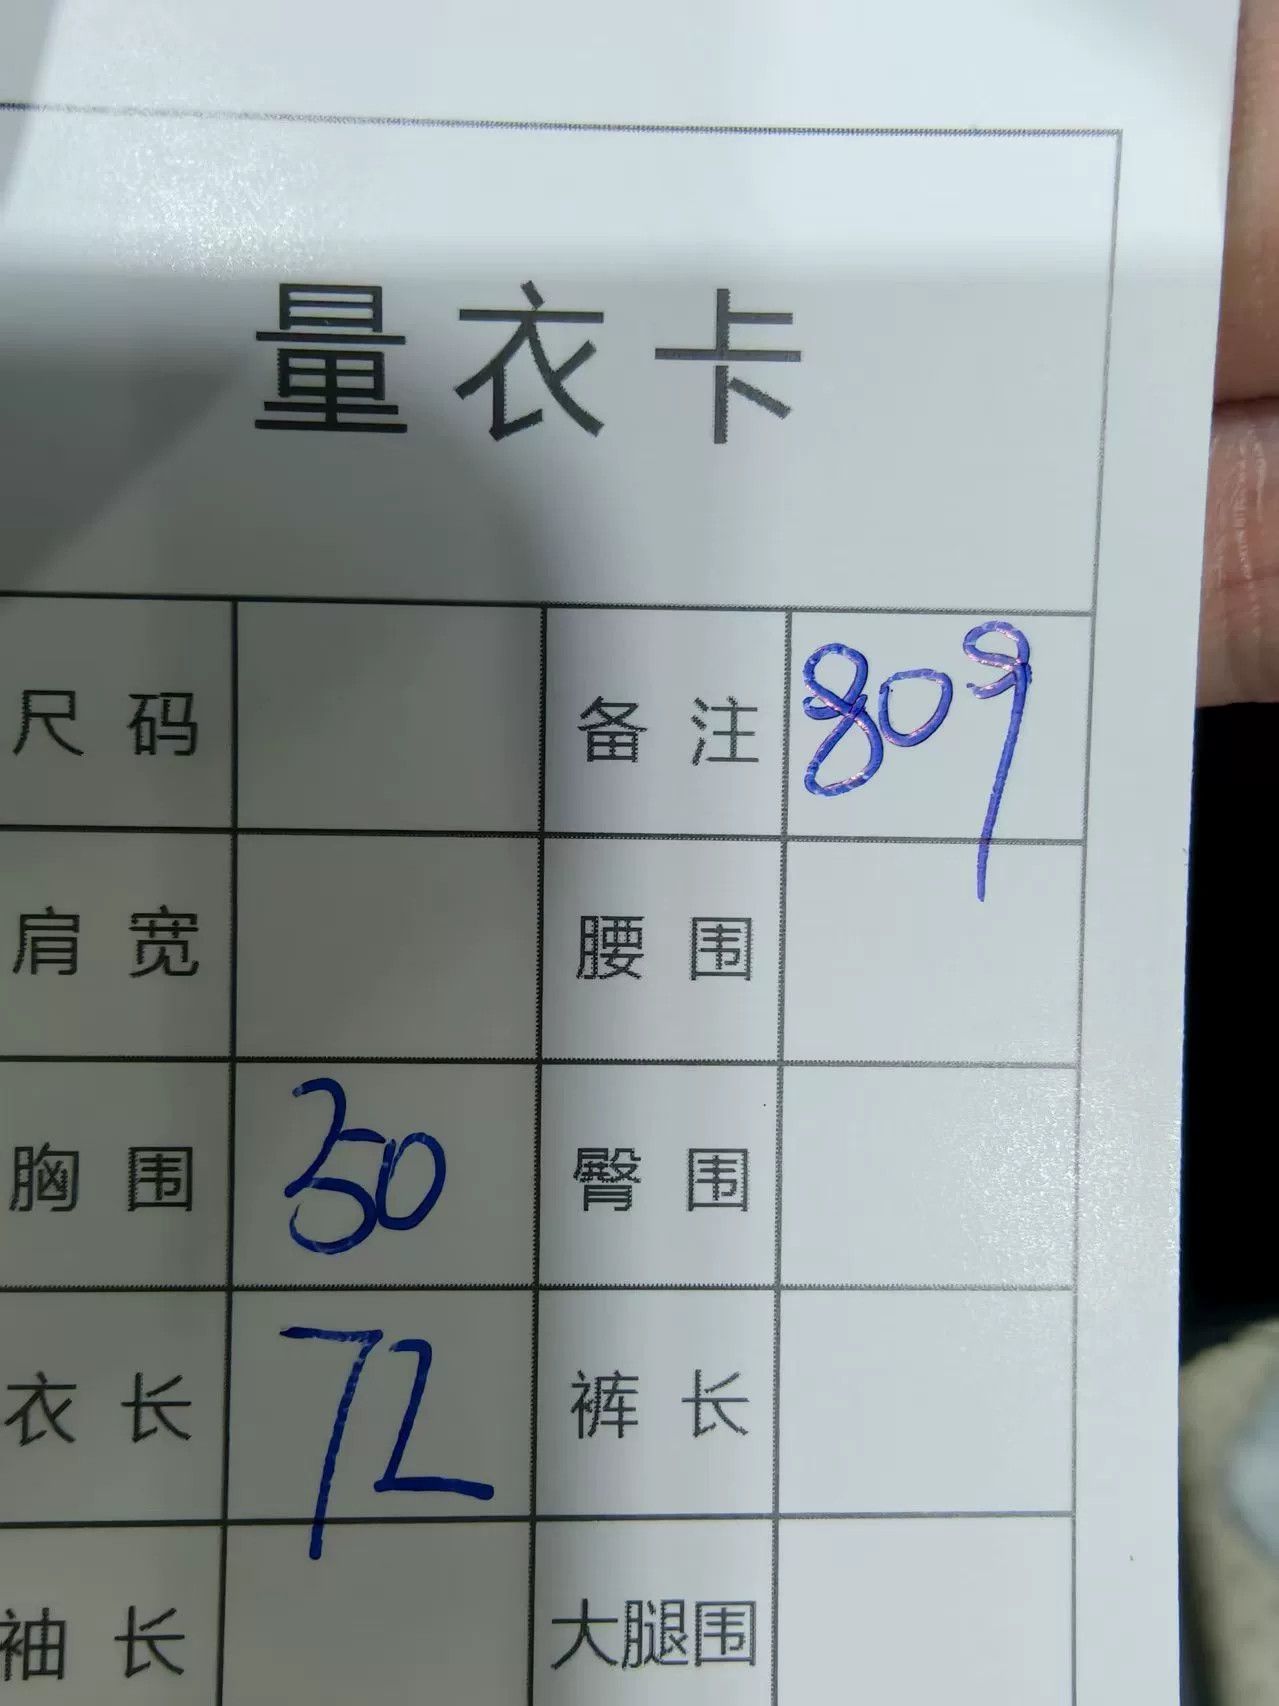 量衣卡
尺码 备注 809
肩宽 腰围
胸围 50 臀围
衣长 72 裤长
袖长 大腿围